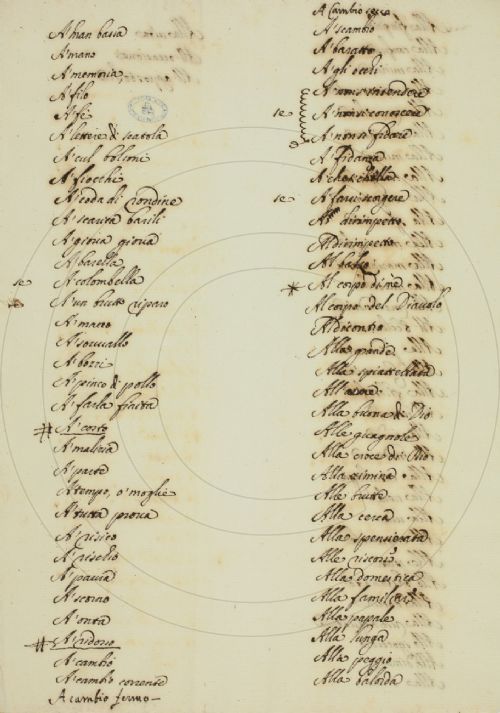 A' man bassa
A' mano
A' memoria
A' filo
A' fé
A' lettere di scatola
A' cul bolzoni
A' fiocchi
A' coda di rondine
A' scarica barili
A' giova giova
A' barella
se A' colombella
A' un brutto riparo
A' mano
A' sonvallo
A'
A' pezico di pollo
A' farla finita
# A' costo
A' malizia
A' parte
A' tempo, o' moglie
A' tutta prova
A' risico
A' rischio
A' paura
A' scorno
A' onta
# A' ridosso
A' cambio
A' cambio corrente
A cambio fermo
A Cambio secco
A' scambio
A' baratto
A' gli occhi
A' non si intendere
se A' non si conoscere
A' non si fidare
A' fidanza
A'
se A' farsi scorgere
Al dirimpetto
Al dirimpetto
Al basso
* Al corpo di me
Al corpo del Diavolo
Al dicontro
Alla grande
Alla spiattellata
All'
Alla buona di Dio
Alle guagnole
Alla croce di Dio
Alla
Alle brutte
Alla cerca
Alla spensierata
Alle riscosse
Alla domestica
Alla familiare
Alla papale
Alla lunga
Alla peggio
Alla balorda